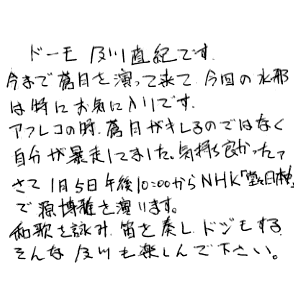 ドーモ 及川直紀です。
今まで萬目を演って来て、今回の水那
は特にお気に入りです。
アフレコの時、萬目がキレるのではなく
自分が暴走してました。気持ち良かったァ
さて 1月5日午後10:00からNHK「
で源博雅を演います。
和歌を詠み、笛を奏し、ドジもする
そんな及川も楽しんで下さい。